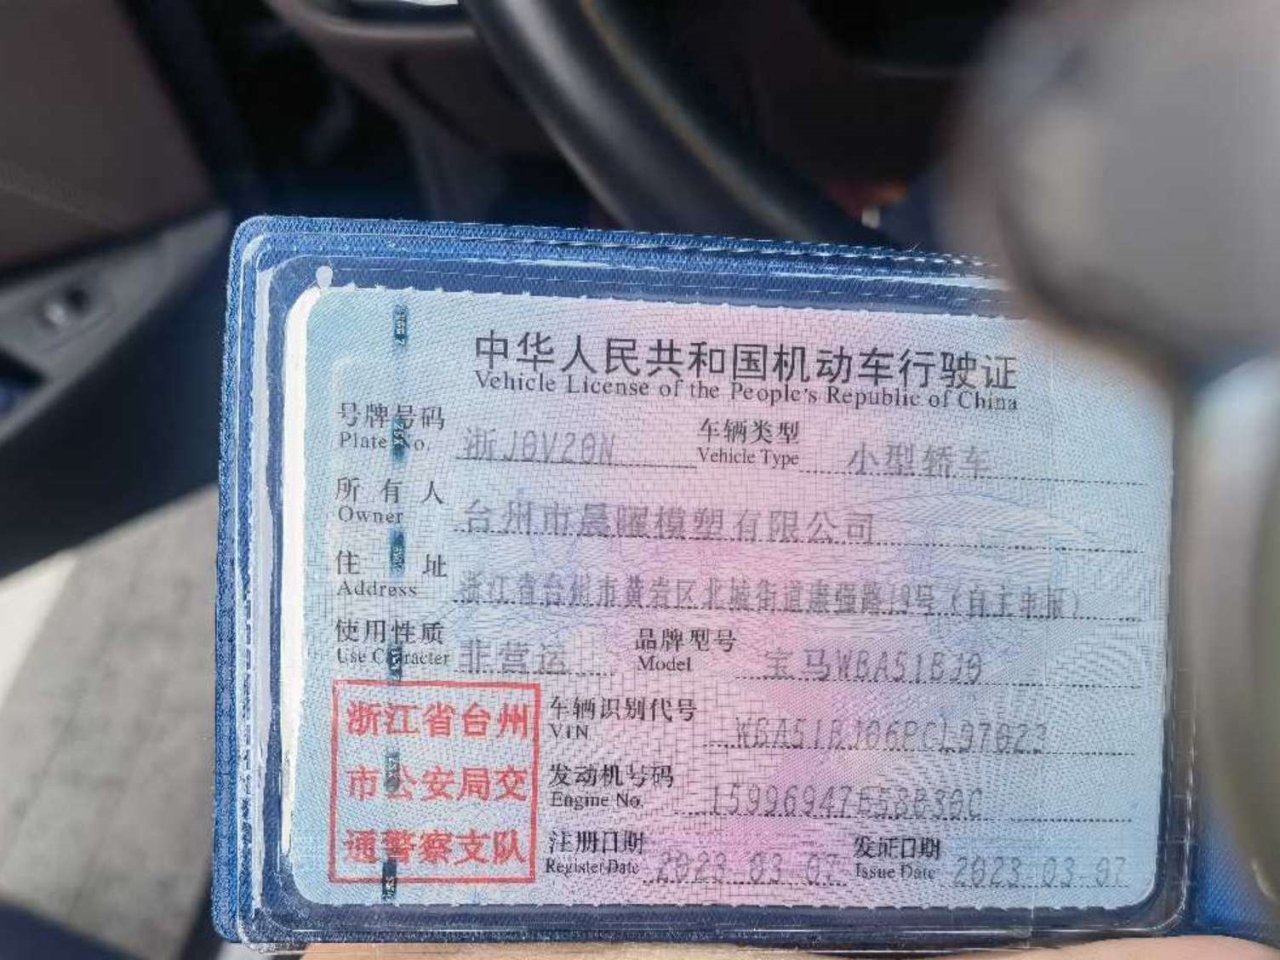 中华人民共和国机动车行驶证
Vehicle License of the People's Republic of China
号牌号码 浙J0V20N 车辆类型 小型轿车
Plate No. Vehicle Type
所有人 台州市晨曜模塑有限公司
Owner
住址 浙江省台州市黄岩区北城街道康强路19号（自主申报）
Address
使用性质 非营运 品牌型号 宝马WBA51BJ0
Use Character Model
浙江省台州
市公安局交
通警察支队
车辆识别代号 WBA51BJ06PCL97023
VIN
发动机号码
Engine No.
注册日期 2023-03-07 发证日期 2023-03-07
Register Date Issue Date